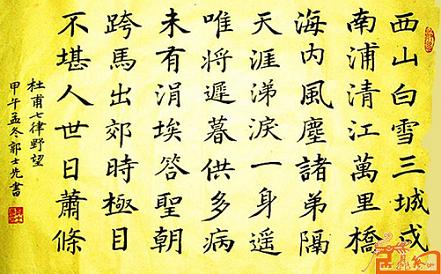 西山白雪三城戍
南浦清江萬里橋
海内風塵諸弟隔
天涯涕淚一身遥
唯將遲暮供多病
未有涓埃答聖朝
跨馬出郊時極目
不堪人世日蕭條
杜甫七律野望
甲午孟冬郭士先書